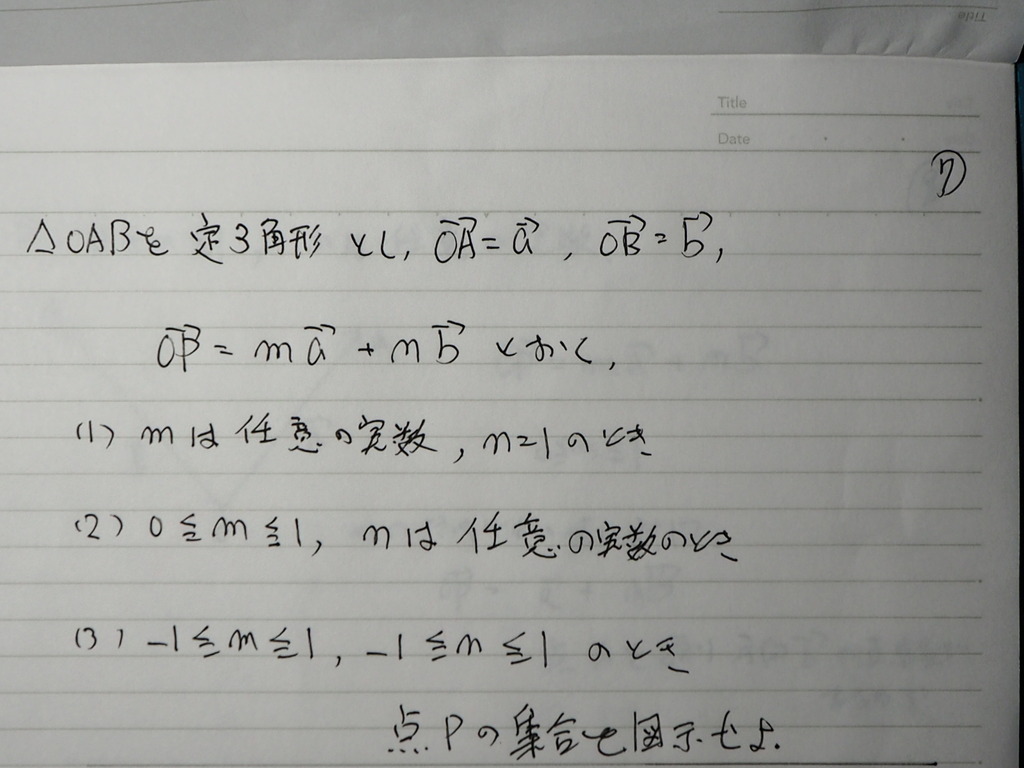 Title
Date
⑦
△OABを定3角形とし, \vec{OA}=\vec{a}, \vec{OB}=\vec{b},
\vec{OP}=m\vec{a}+n\vec{b} とおく,
(1) mは任意の実数, n=1のとき
(2) 0≦m≦1, nは任意の実数のとき
(3) -1≦m≦1, -1≦n≦1のとき
点Pの集合を図示せよ.